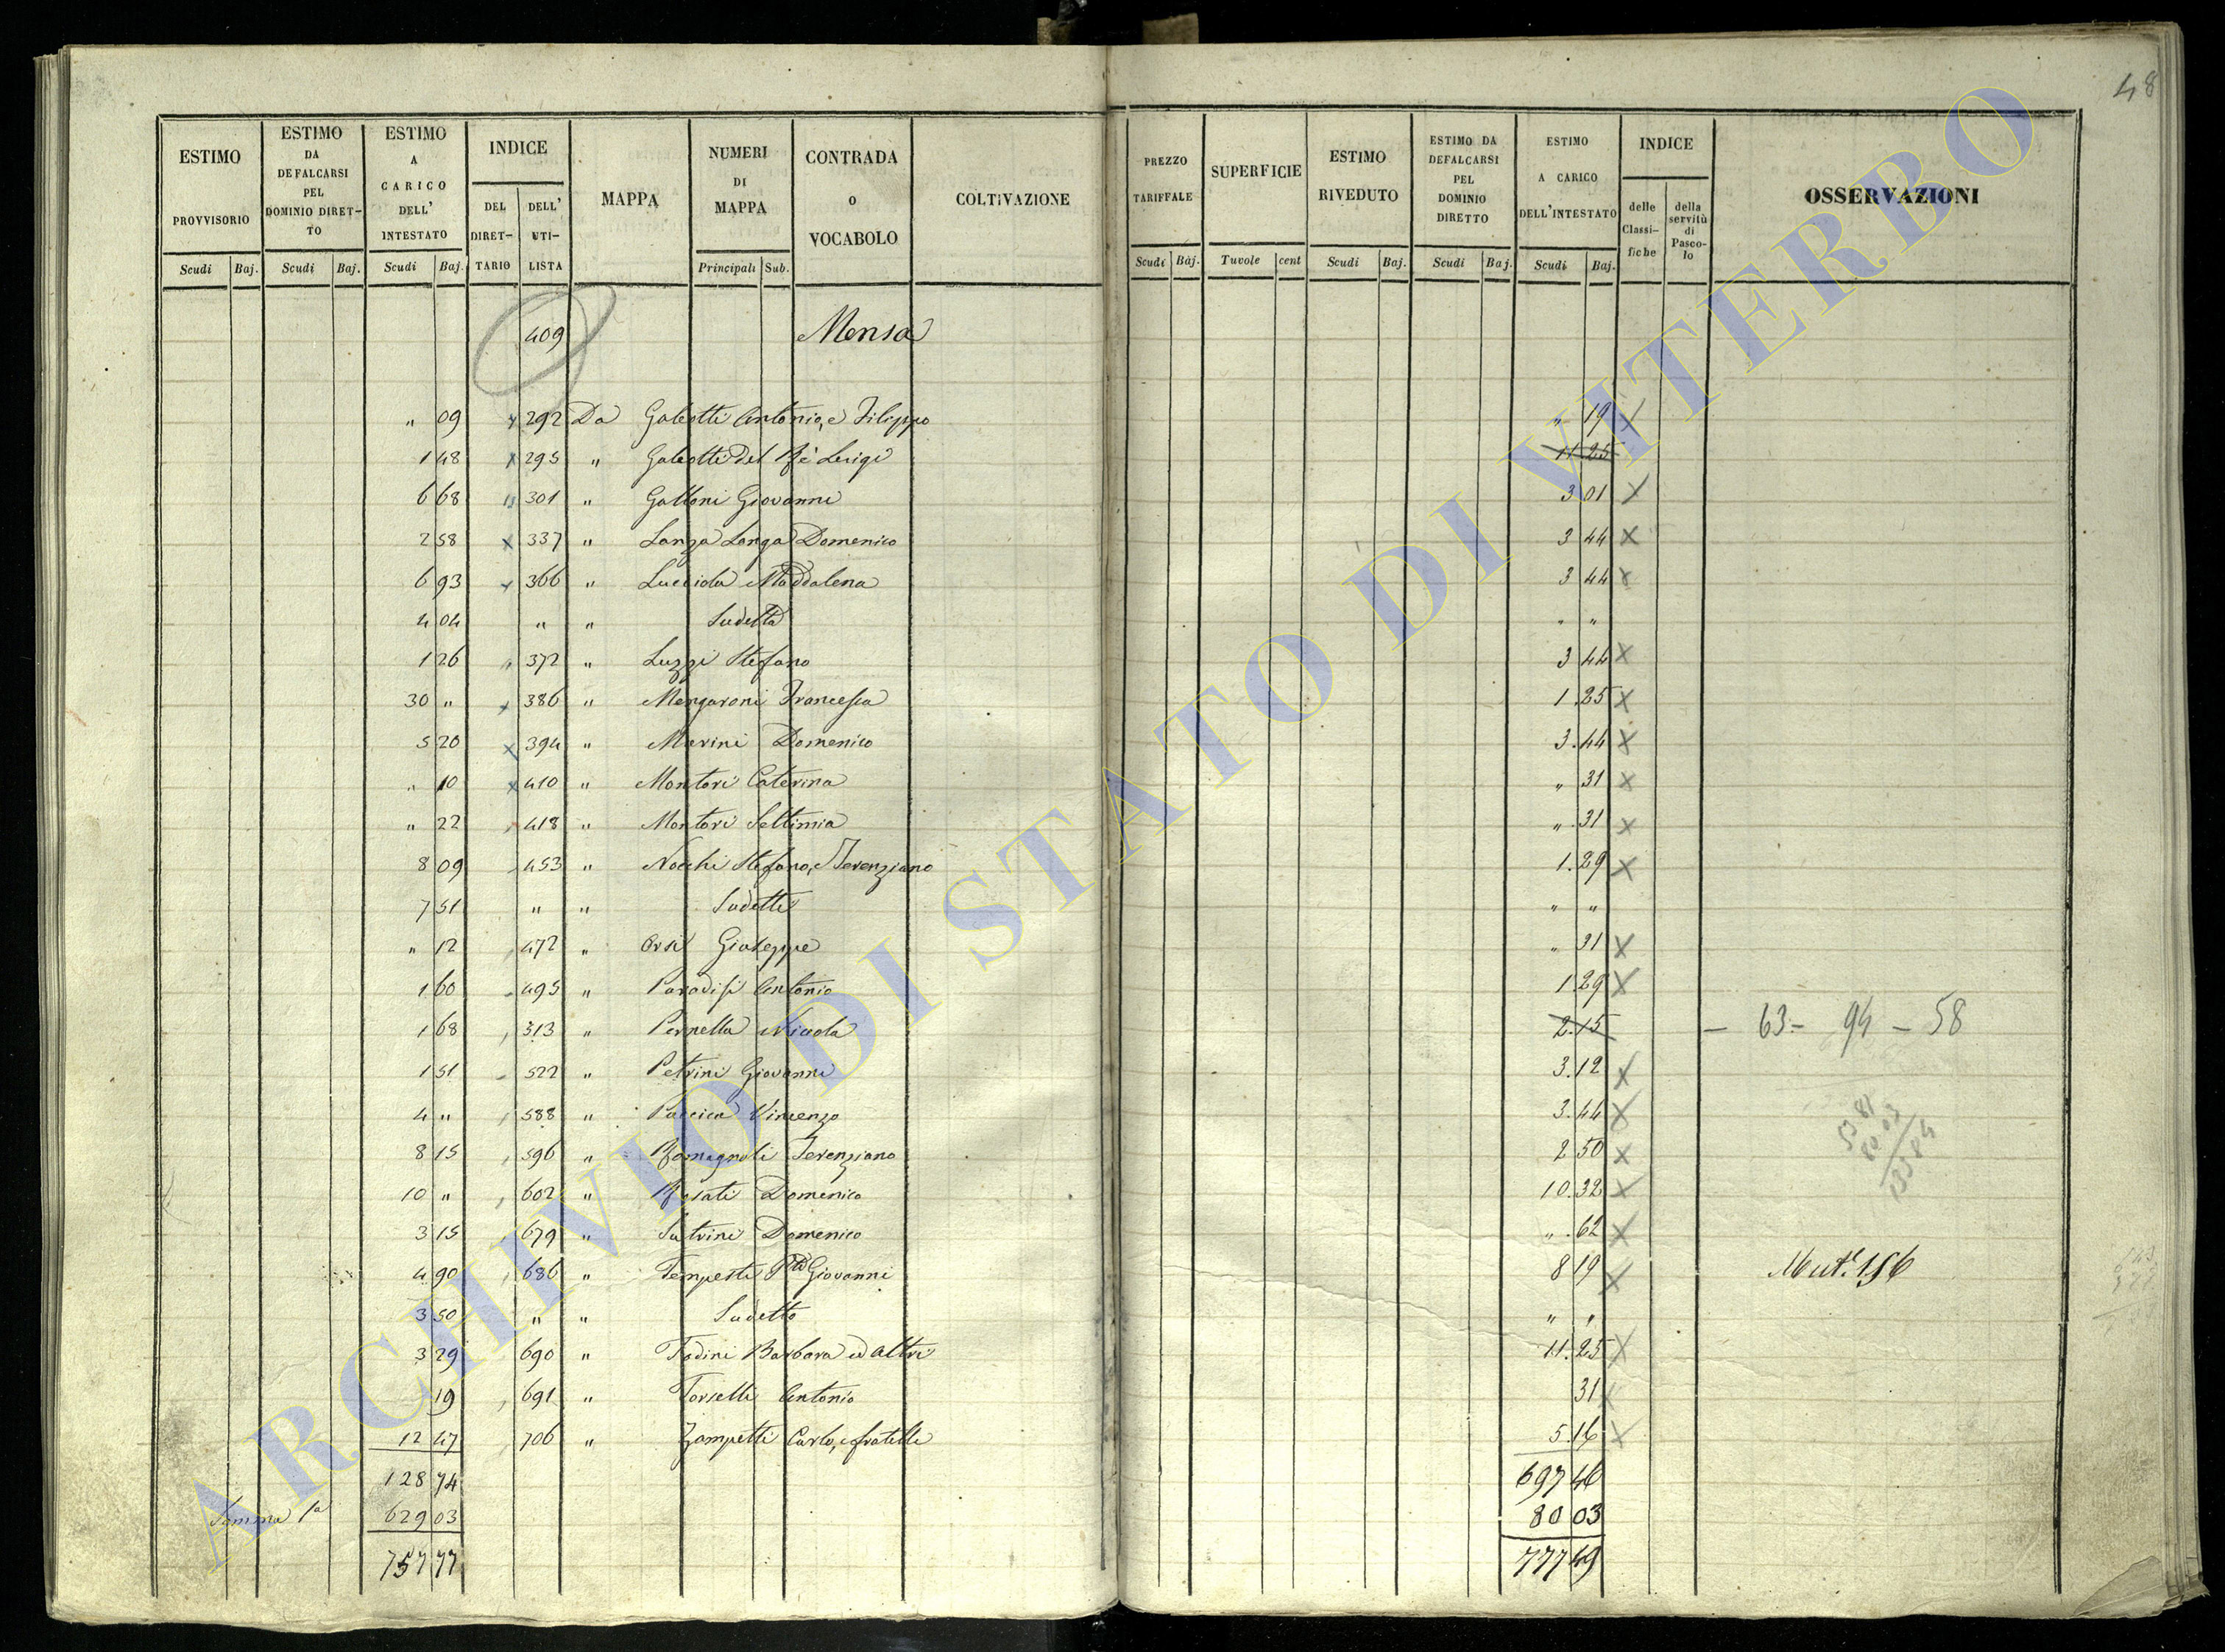 48
ESTIMO PROVVISORIO
ESTIMO DA DEFALCARSI PEL DOMINIO DIRET-TO
ESTIMO A CARICO DELL' INTESTATO
INDICE
DEL DIRET-TARIO
DELL' UTI-LISTA
MAPPA
NUMERI DI MAPPA
CONTRADA o VOCABOLO
COLTIVAZIONE
PREZZO TARIFFALE
SUPERFICIE
ESTIMO RIVEDUTO
ESTIMO DA DEFALCARSI PEL DOMINIO DIRETTO
ESTIMO A CARICO DELL'INTESTATO
INDICE
delle Classi-fiche
della servitù di Pasco-lo
OSSERVAZIONI
Scudi Baj. Scudi Baj. Scudi Baj. Principali Sub. Scudi Baj. Tavole cent Scudi Baj. Scudi Baj. Scudi Baj.
409 Mensa
" 09 x 292 Da Galeotti Antonio, e Filippo " 19 X
1 48 x 295 " Galeotti del Rè Luigi 11 25
6 68 301 " Galloni Giovanni 3 01 X
2 58 x 337 " Lanza Longa Domenico 3 44 X
6 93 x 366 " Lucciola Maddalena 3 44 X
4 04 " " Sudetta " "
1 26 372 " Luzzi Stefano 3 44 X
30 " x 386 " Mengaroni Francesca 1.25 X
5 20 x 394 " Marini Domenico 3.44 X
" 10 x 410 " Montori Caterina " 31 X
" 22 418 " Montori Settimia " .31 X
8 09 453 " Nocchi Stefano, e Terenziano 1.29 X
7 51 " " Sudetti " "
" 12 472 " Orsi Giuseppe " 31 X
1 60 495 " Paradisi Antonio 1.29 X
1 68 513 " Pernella Nicola 2.15 — 63 - 94 - 58
1 51 522 " Petrini Giovanni 3.12 X
4 " 588 " Puccica Vincenzo 3.44 X
53 81
80 03
133 84
8 15 596 " Romagnoli Terenziano 2 50 X
10 " 602 " Rosati Domenico 10.32 X
3 15 679 " Sutrini Domenico " .62 X
4 90 686 " Tempesti Giovanni 8 19 X Mut. 156
3 50 " " Sudetto " "
3 29 690 " Todini Barbara ed altri 11.25 X
19 691 " Torselli Antonio 31
12 47 706 " Zampetti Carlo, e fratelli 5.16 X
128 74 697 46
Somma 1a 629 03 80 03
757 77 777 49
ARCHIVIO DI STATO DI VITERBO